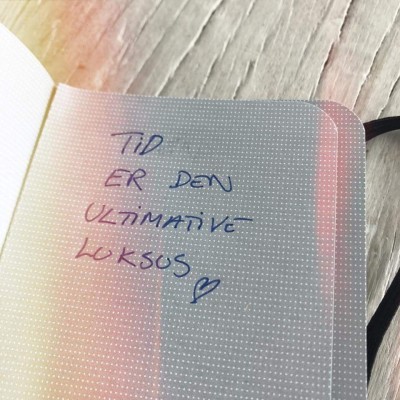 TiD
ER DEN
ULTiMATiVE
LUKSUS ♡